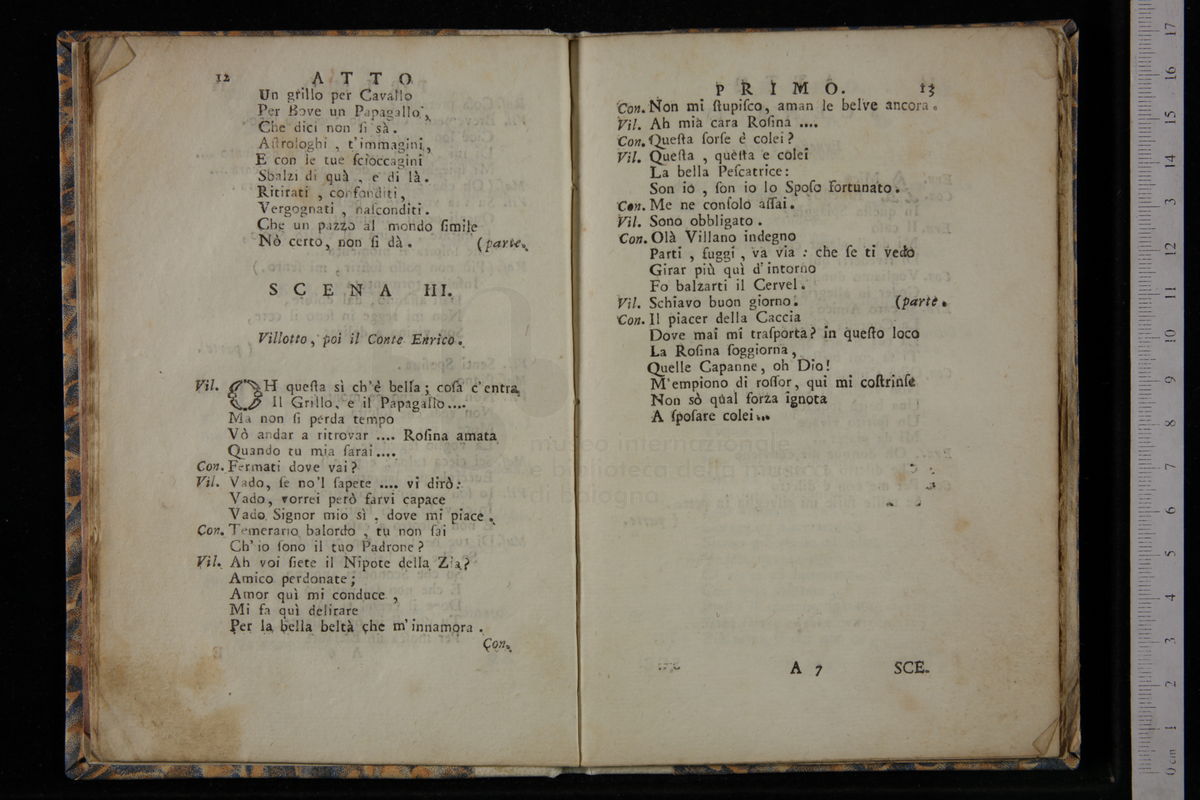 12 ATTO
Un grillo per Cavallo
Per Bove un Papagallo,
Che dici non ſi sà.
Aſtrologhi, t'immagini,
E con le tue ſcioccagini
Sbalzi di quà, e di là.
Ritirati, confonditi,
Vergognati, naſconditi.
Che un pazzo al mondo ſimile
Nò certo, non ſi dà. (parte.
SCENA III.
Villotto, poi il Conte Enrico.
Vil. OH queſta sì ch'è bella; coſa c'entra
Il Grillo, e il Papagallo....
Ma non ſi perda tempo
Vò andar a ritrovar .... Roſina amata
Quando tu mia ſarai....
Con. Fermati dove vai?
Vil. Vado, ſe no'l ſapete .... vi dirò:
Vado, vorrei però farvi capace
Vado Signor mio sì, dove mi piace.
Con. Temerario balordo, tu non ſai
Ch'io ſono il tuo Padrone?
Vil. Ah voi ſiete il Nipote della Zia?
Amico perdonate;
Amor quì mi conduce,
Mi fa quì delirare
Per la bella beltà che m'innamora.
Con.
PRIMO. 13
Con. Non mi ſtupiſco, aman le belve ancora.
Vil. Ah mia cara Roſina ....
Con. Queſta forſe è colei?
Vil. Queſta, queſta e colei
La bella Peſcatrice:
Son io, ſon io lo Spoſo fortunato.
Con. Me ne conſolo aſſai.
Vil. Sono obbligato.
Con. Olà Villano indegno
Parti, fuggi, va via: che ſe ti vedo
Girar più quì d'intorno
Fo balzarti il Cervel.
Vil. Schiavo buon giorno. (parte.
Con. Il piacer della Caccia
Dove mai mi traſporta? in queſto loco
La Roſina ſoggiorna,
Quelle Capanne, oh Dio!
M'empiono di roſſor, qui mi coſtrinſe
Non sò qual forza ignota
A ſpoſare colei...
A 7 SCE.
museo internazionale
e biblioteca della musica
di bologna
0 cm 1 2 3 4 5 6 7 8 9 10 11 12 13 14 15 16 17